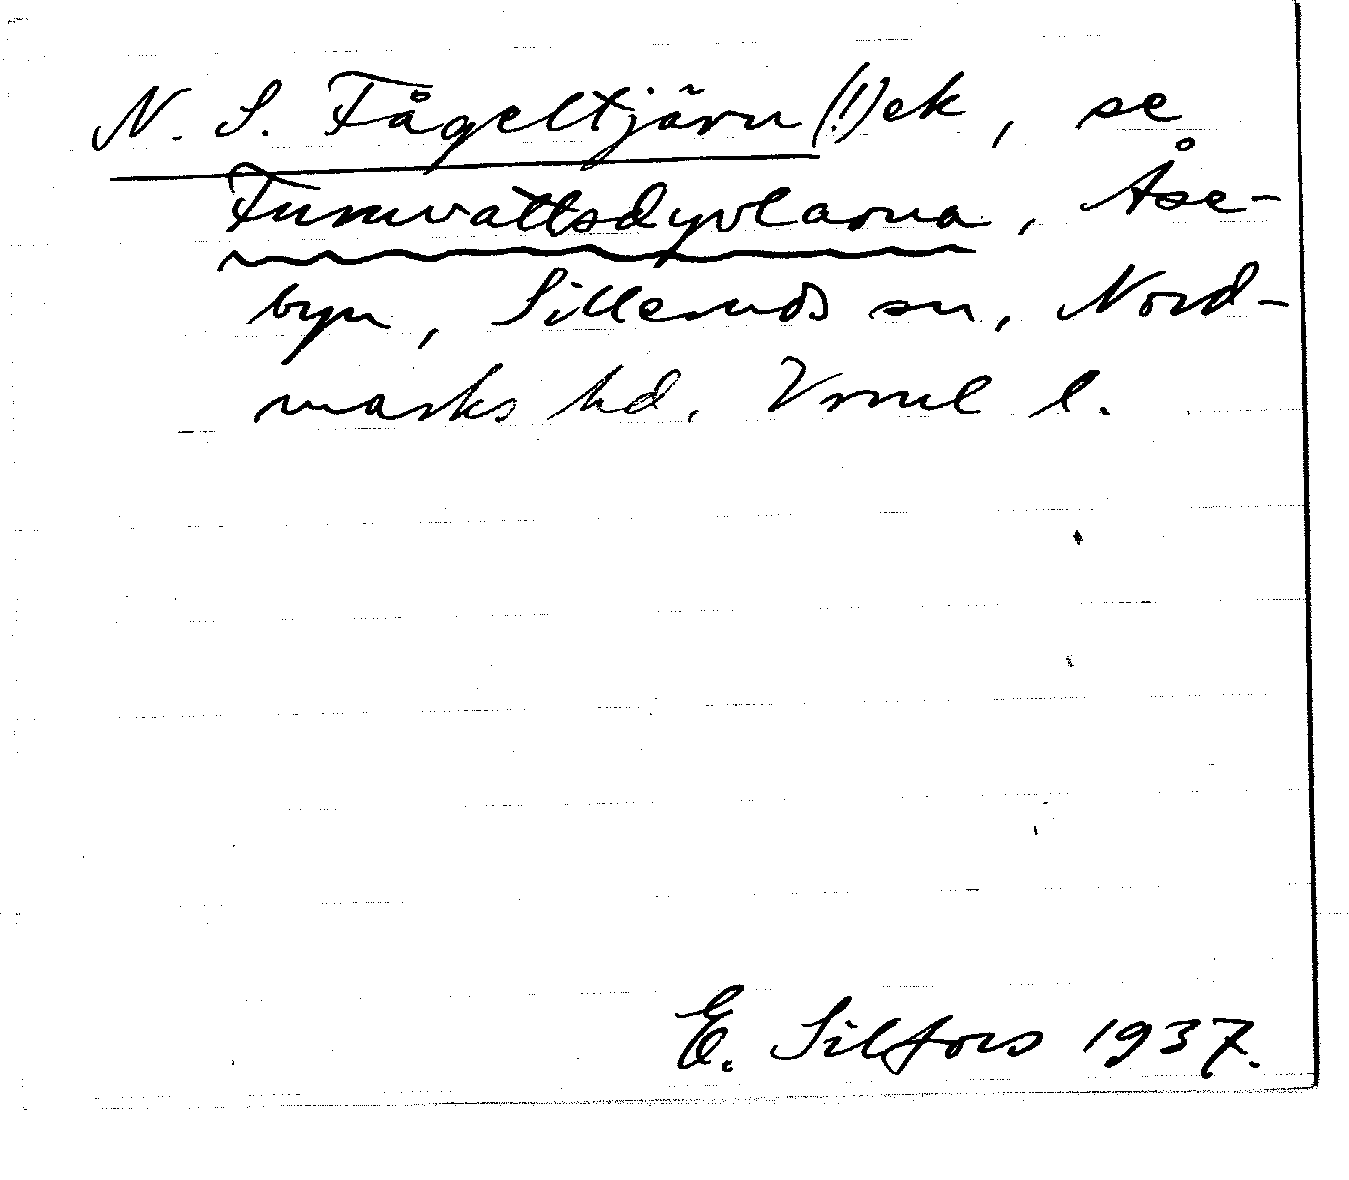 N. S. Fågeltjärn(!) ek, se
Furuvattsdyvlarna, Åse-
byn, Silleruds sn, Nord-
marks hd. Vrml l.
E. Silfors 1937.